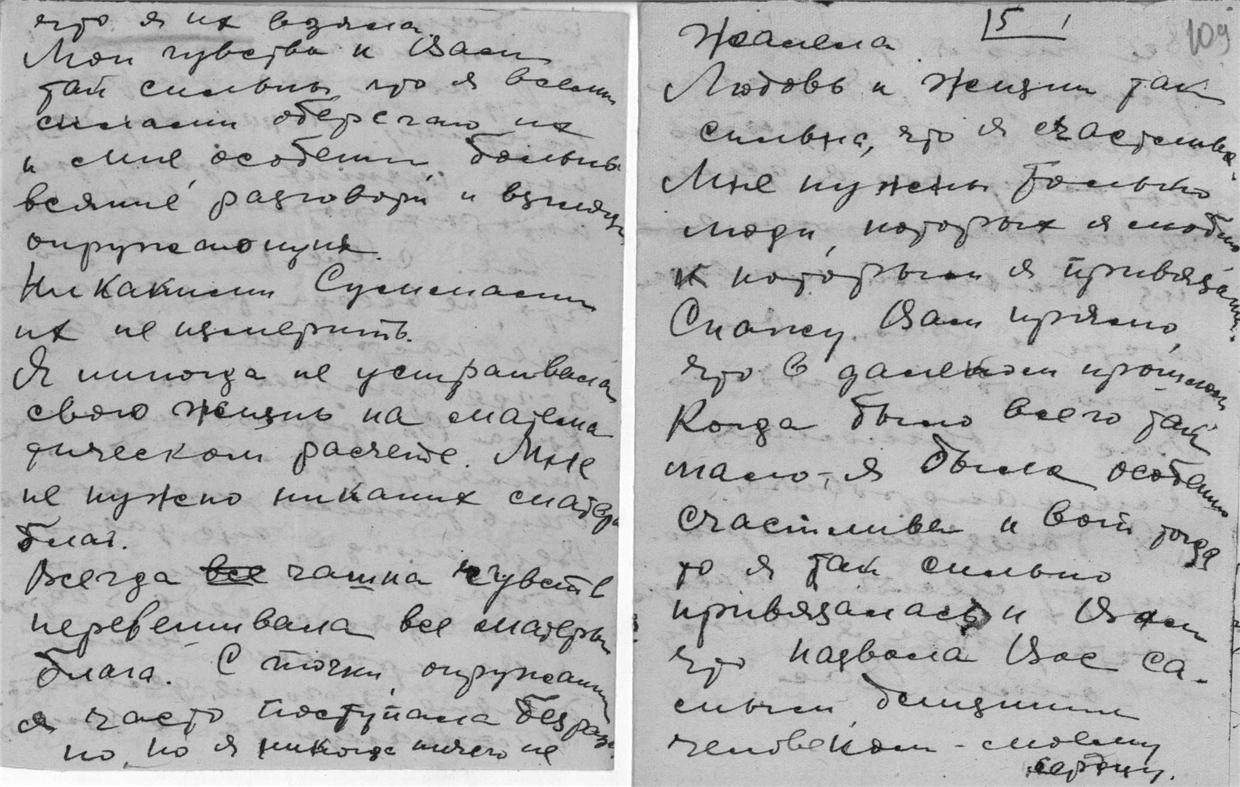 что я их взяла.
Мои чувства к Вам
так сильны что я всеми
силами оберегаю их
и мне, особенно, больны
всякие разговоры и взгляды
окружающих.
Никакими Суммами
их не измерить.
Я никогда не устраивала
свою жизнь на матема
тическом расчете. Мне
не нужно никаких матер
благ.
Всегда все чашка чувств
перевешивала все матеры
блага. С точки, окружающ
я часто поступала безраз
но, но я никогда ничего не
5
109
Жалела
Любовь к жизни так
сильна, что я счастлива.
Мне нужны только
люди, которых я люблю
к которым я привязана.
Скажу Вам прямо,
что в далеком прошлом
Когда было всего так
мало - я была особенно
счастлива и вот тогда
то я так сильно
привязалась к Вам
что назвала Вас са-
мым близким
человеком - моему
сердцу.